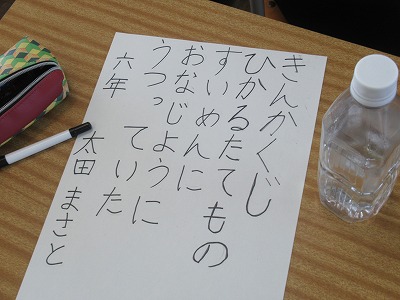 きんかくじ
ひかるたてもの
すいめんに
おなじように
うつっていた
六年 太田 まさと